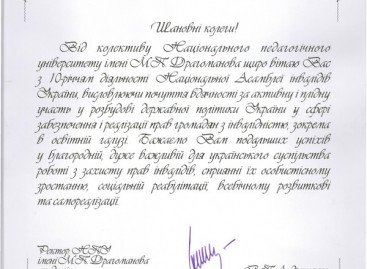 Шановні колеги!
Від колективу Національного педагогічного
університету імені М.П. Драгоманова щиро вітаю Вас
з 10-річчям діяльності Національної Асамблеї інвалідів
України, висловлюючи почуття вдячності за активну і плідну
участь у розбудові державної політики України у сфері
забезпечення і реалізації прав громадян з інвалідністю, зокрема
в освітній галузі. Бажаємо Вам подальших успіхів
у благородній, дуже важливій для українського суспільства
роботі з захисту прав інвалідів, сприянні їх особистісному
зростанню, соціальній реабілітації, всебічному розвиткові
та самореалізації.
Ректор НПУ
імені М.П. Драгоманова